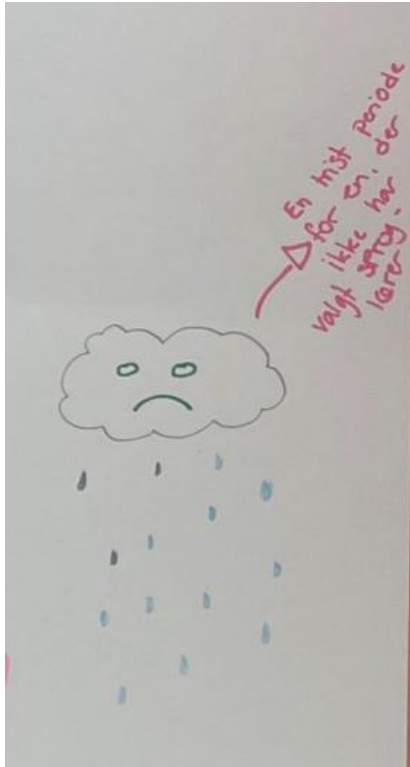 En trist periode
for en, der
ikke har
valgt sprog.
lærer